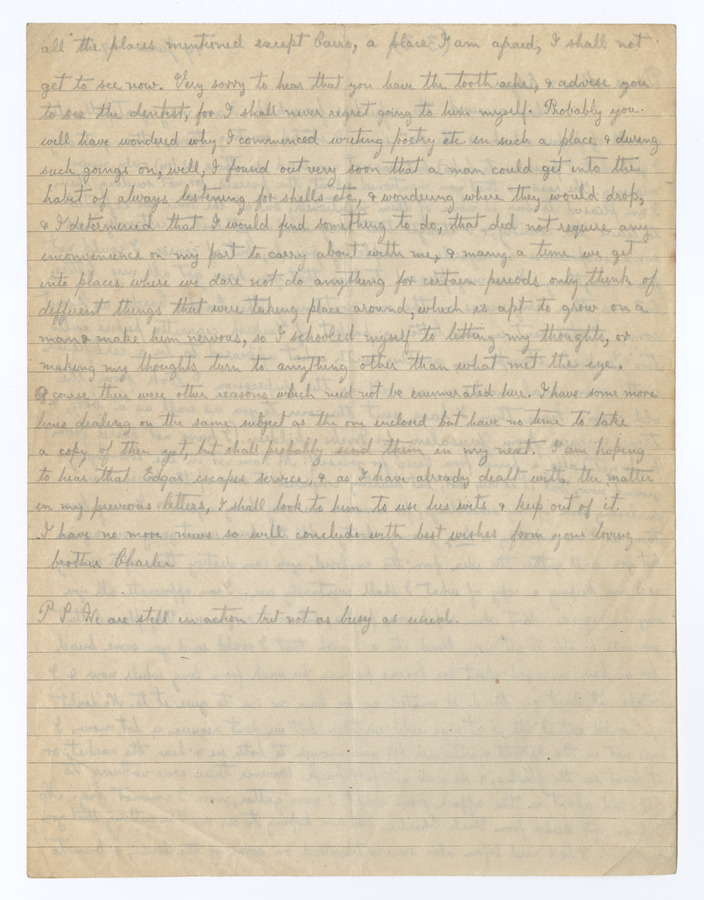 all the places mentioned except Cairo, a place I am afraid, I shall not
get to see now. Very sorry to hear that you have the tooth ache, & advise you
to see the dentist, for I shall never regret going to him myself. Probably you
will have wondered why I commenced writing poetry etc in such a place & during
such goings on, well, I found out very soon that a man could get into the
habit of always listening for shells etc, & wondering where they would drop,
& I determined that I would find something to do, that did not require any
inconvenience on my part to carry about with me, & many a time we get
into places where we dare not do anything for certain periods only think of
different things that were taking place around, which is apt to grow on a
man & make him nervous, so I schooled myself to letting my thoughts, or
making my thoughts turn to anything other than what met the eye.
Of course there were other reasons which need not be enumerated here. I have some more
lines dealing on the same subject as the one inclosed but have no time to take
a copy of them yet, but shall probably send them in my next. I am hoping
to hear that Edgar escapes service, & as I have already dealt with the matter
in my previous letters, I shall look to him to use his wits & keep out of it.
I have no more news so will conclude with best wishes from your loving
brother Charlie
P S. We are still in action but not as busy as usual.